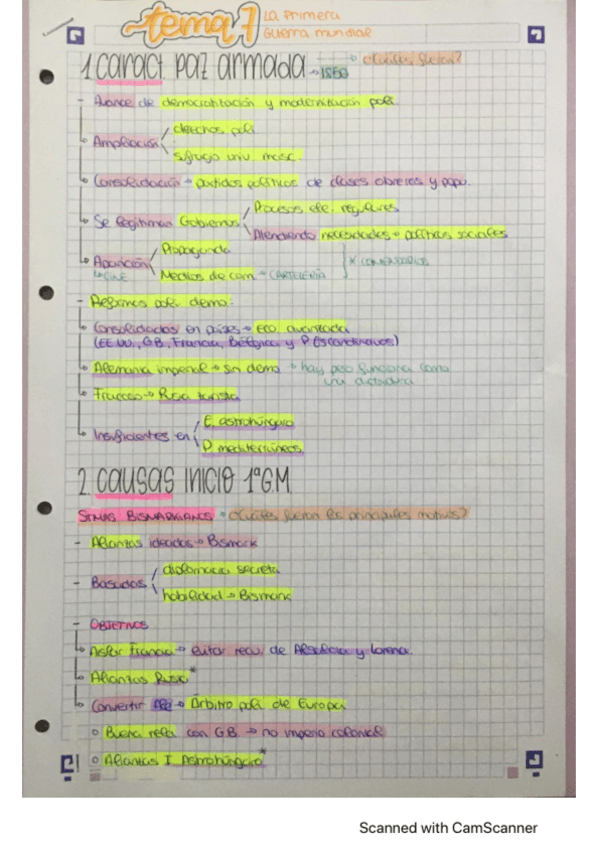 tema 7 La Primera
Guerra mundial
1. caract paz armada → 1850 → ¿Cuáles fueron?
- Avance de democratización y modernización polí.
Ampliación derechos polí.
sufragio univ. masc.
Consolidación → partidos políticos de clases obreras y popu.
Se legitiman Gobiernos Procesos ele. regulares
Atendiendo necesidades → políticas sociales
Aparición Propaganda
↳ CINE Medios de com → CARTELERÍA * COMENTARIOS
- Reformas polí. demo:
Consolidadas en países → Eco. avanzada
(EEUU, GB, Francia, Bélgica y P. Escandinavos)
Alemania imperial → sin demo → hay pero funciona como
una dictadura
Fracaso → Rusia zarista
Insuficientes en E. astrohúngaro
P. mediterráneos.
2. causas inicio 1ª GM
STMAS BISMARKIANOS → ¿Cuáles fueron los principales motivos?
- Alianzas ideadas → Bismark
- Basadas diplomacia secreta
habilidad → Bismark
- OBJETIVOS
Aislar Francia → evitar recu. de Alsacia y Lorena.
Alianzas Rusia*
Convertir Ale → Árbitro polí. de Europa
Buena rela. con GB → no imperio colonial
Alianzas I. Astrohúngaro*
Scanned with CamScanner